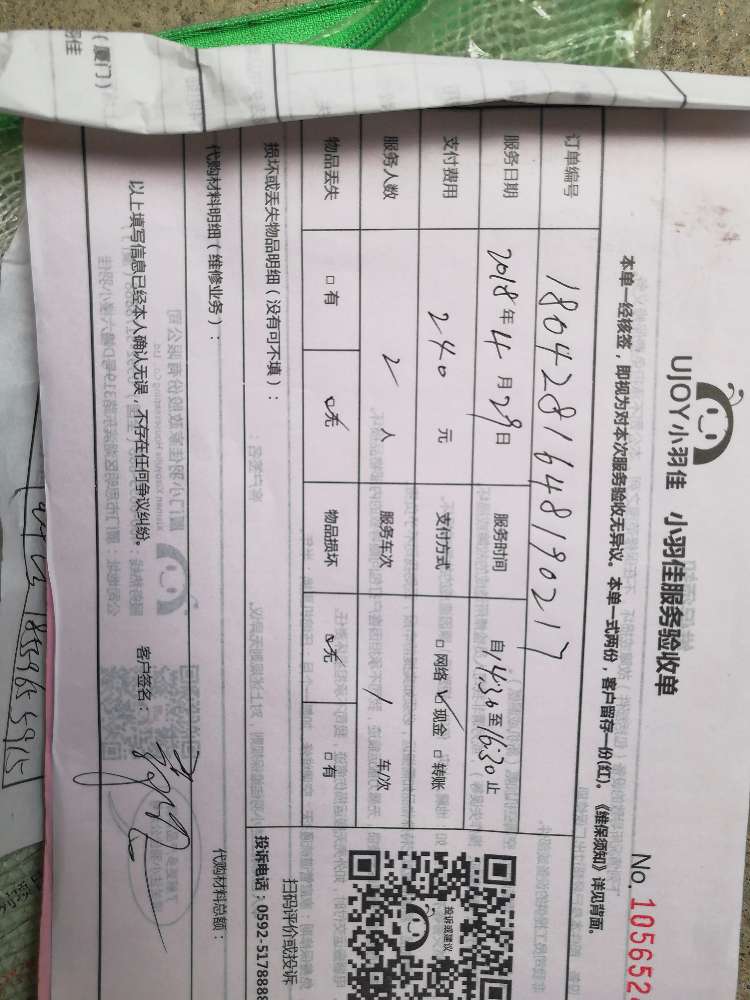 （厦门）
羽佳
UJOY小羽佳 小羽佳服务验收单
No. 1056524
本单一经核签，即视为对本次服务验收无异议。本单一式两份，客户留存一份(红)。《维保须知》详见背面。
订单编号 180428164819021７
服务日期 2018年4月29日 服务时间 自14:30至16:30止
支付费用 240 元 支付方式 □网络 ☑现金 □转账
服务人数 2 人 服务车次 1 车/次
物品丢失 □有 ☑无 物品损坏 ☑无 □有
损坏或丢失物品明细（没有可不填）：
代购材料明细（维修业务）： 代购材料总额：
以上填写信息已经本人确认无误，不存在任何争议纠纷。 客户签名：
投诉或建议
扫码评价或投诉
投诉电话：0592-5178888
18559655915